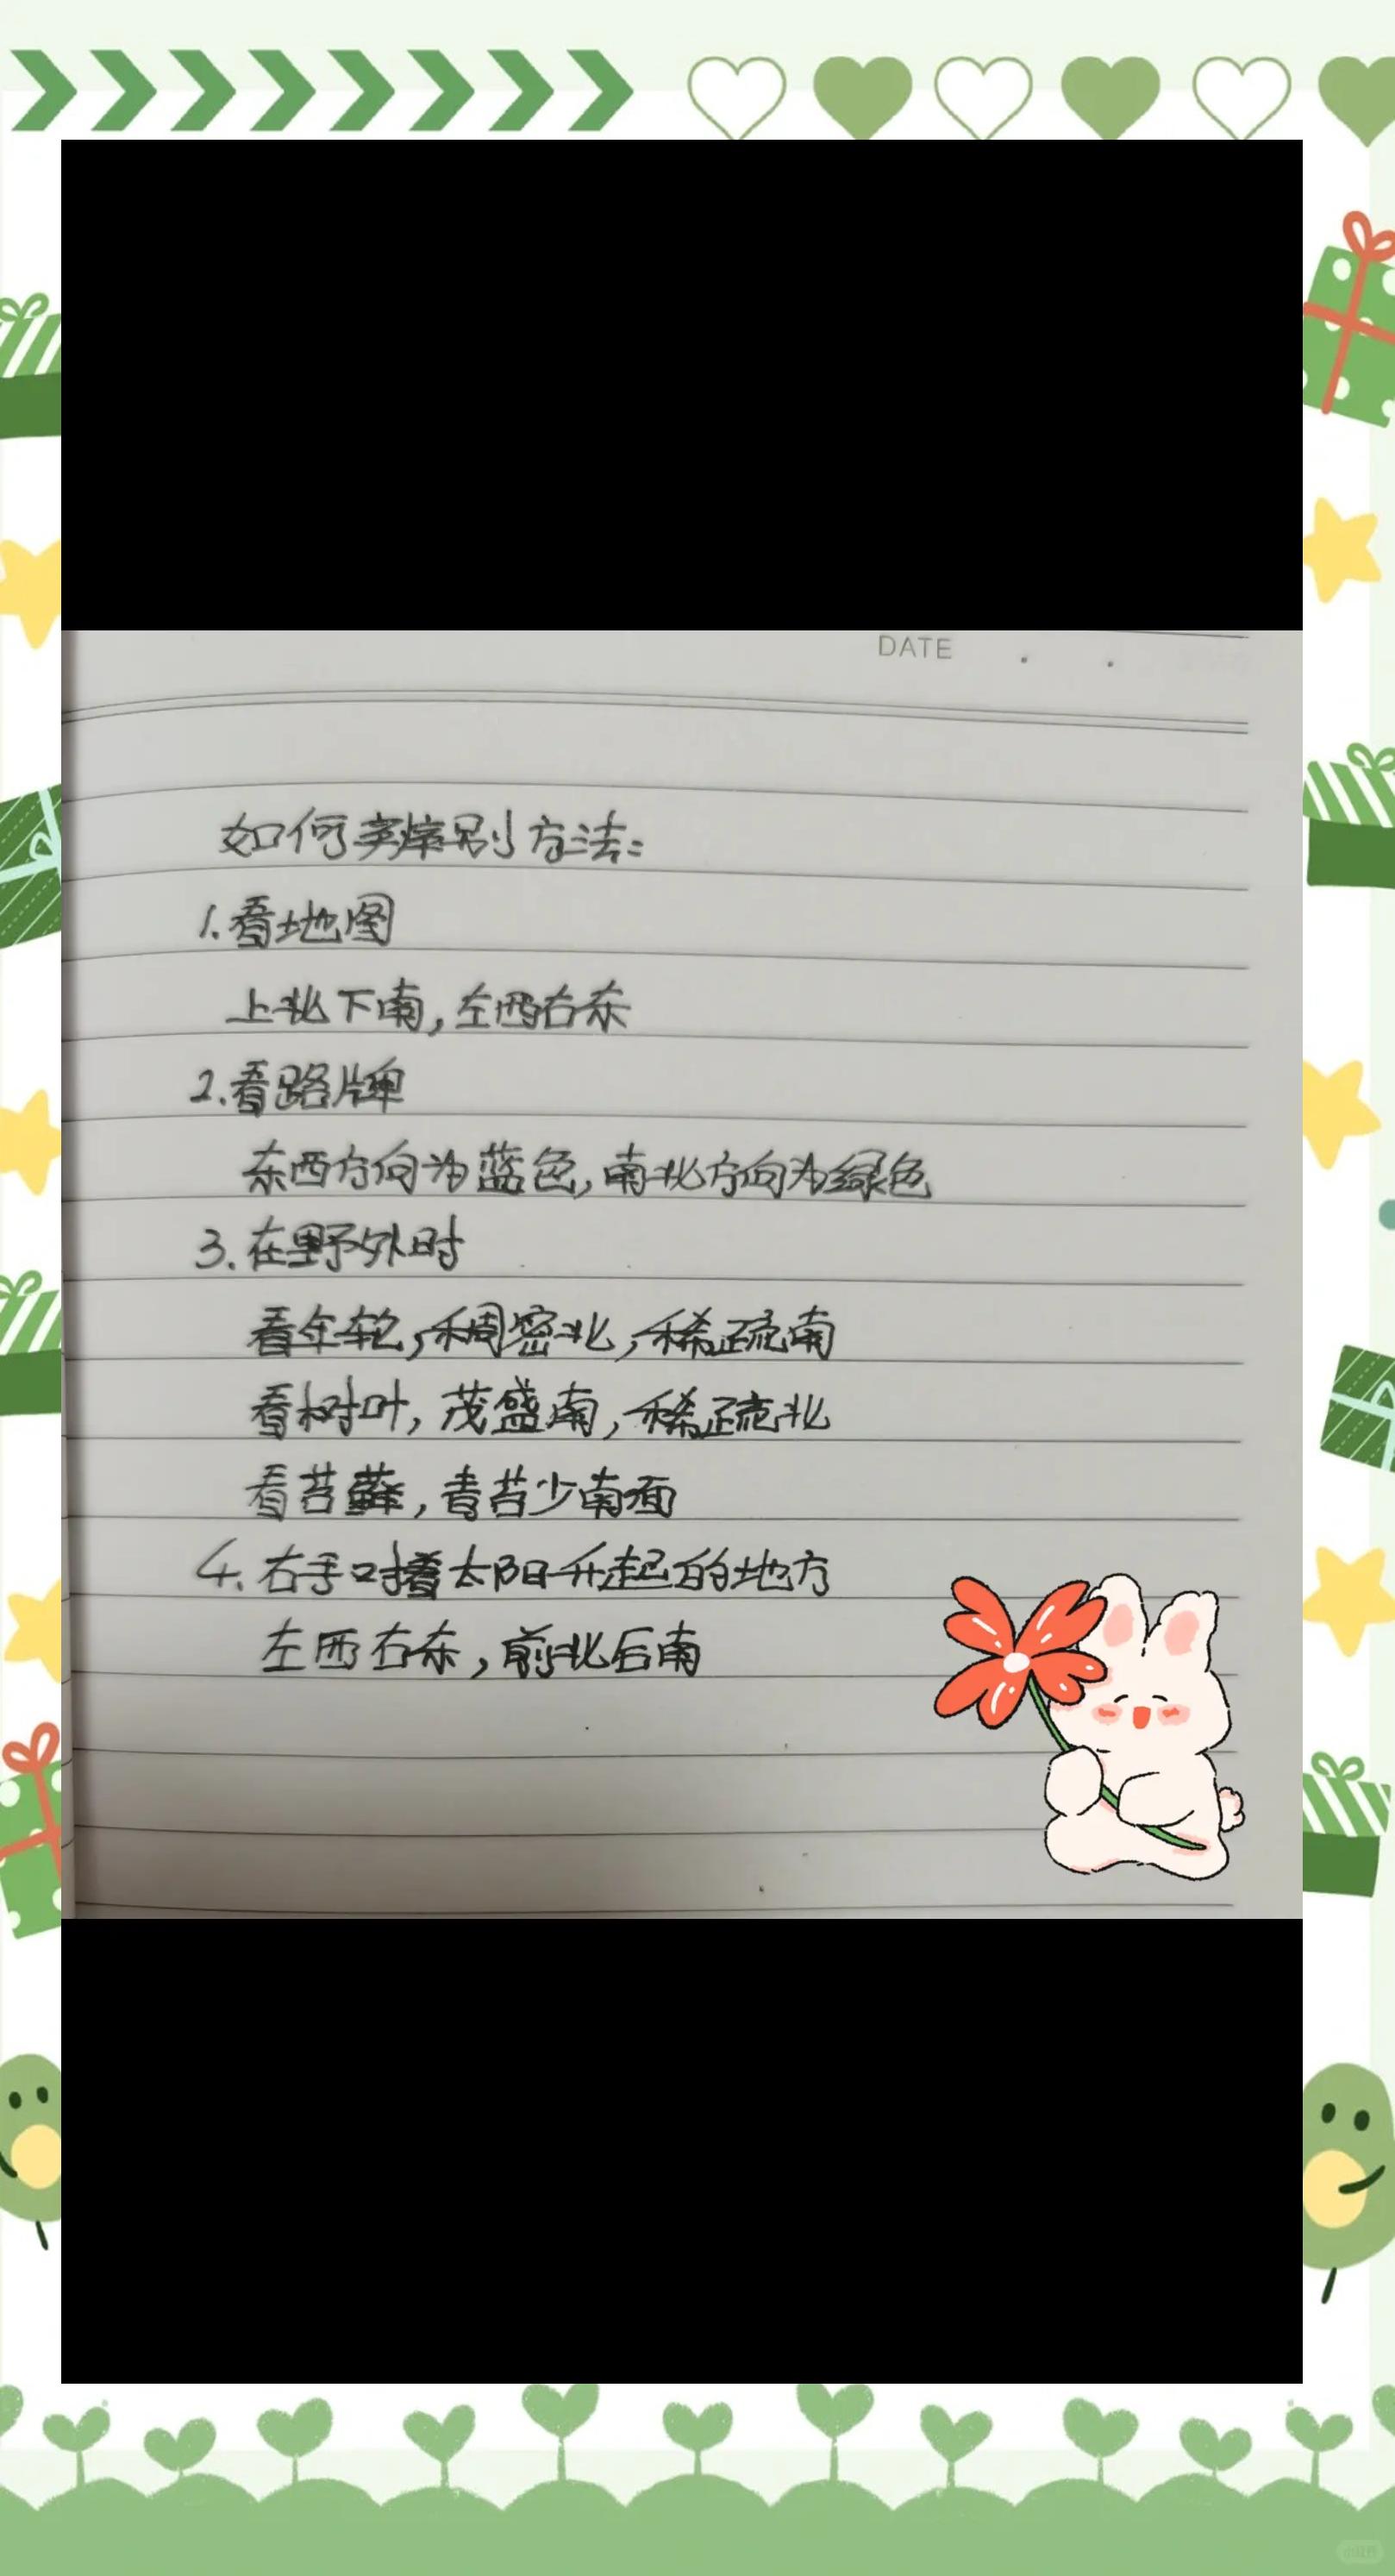 DATE . .
如何辨别方法：
1.看地图
上北下南，左西右东
2.看路牌
东西方向为蓝色，南北方向为绿色
3.在野外时
看年轮，稠密北，稀疏南
看树叶，茂盛南，稀疏北
看苔藓，青苔少南面
4.右手对着太阳升起的地方
左西右东，前北后南